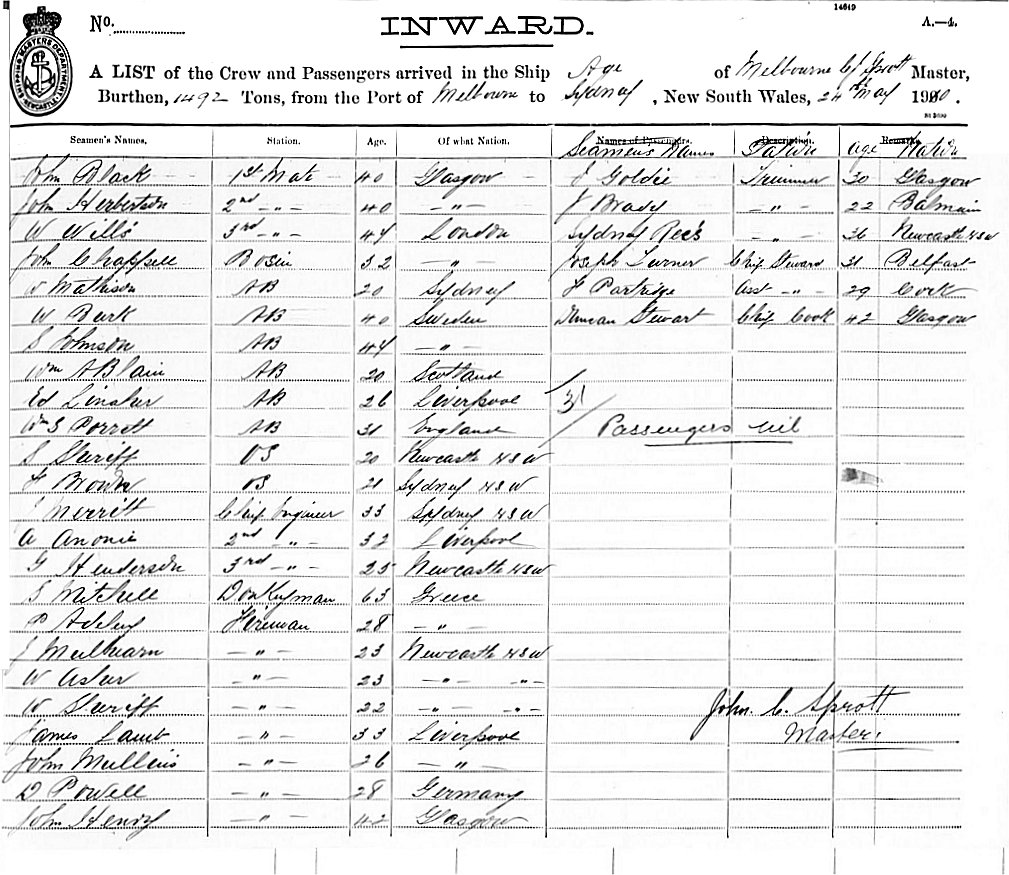 14619
No. INWARD. A.—4.
A LIST of the Crew and Passengers arrived in the Ship Age of Melbourne C Sprott Master,
Burthen, 1492 Tons, from the Port of Melbourne to Sydney, New South Wales, 24th May 1900.
SHIPPING MASTERS DEPARTMENT NEWCASTLE
Seamen's Names. Station. Age. Of what Nation. Names of Passengers. Description. Remarks
Seamens Names Station age Nation
John Black 1st Mate 40 Glasgow J Goldie Trimmer 30 Glasgow
John Herbertson 2nd - " - 40 - " - J Brady - " - 22 Balmain
W Wills 3rd - " - 44 London Sydney Rees - " - 36 Newcastle NSW
John Chappell Bosin 32 - " - Joseph Turner Chif Steward 31 Belfast
W Mathison AB 20 Sydney F Partridge Asst - " - 29 Cork
W Burk AB 40 Sweden Duncan Stewart Chif Cook 42 Glasgow
S Johnson AB 44 - " -
Wm A Blain AB 20 Scotland
Ed Linaker AB 26 Liverpool
31
Wm S Porrett AB 31 England Passengers nil
S Sheriff OS 20 Newcastle NSW
F Brown OS 21 Sydney NSW
Merritt Chif Engineer 33 Sydney NSW
A Anonie 2nd " - 32 Liverpool
G Henderson 3rd - " - 25 Newcastle NSW
S Mitchell Donkeyman 63 Greece
P Adeley Fireman 28 - " -
J Mulhearn - " - 23 Newcastle NSW
W Asher - " - 23 - " - - " -
W Sheriff - " - 22 - " - - " -
John. C. Sprott
James Lamb - " - 33 Liverpool
Master.
John Mullins - " - 26 - " -
D Powell - " - 28 Germany
John Henry - " - 42 Glasgow